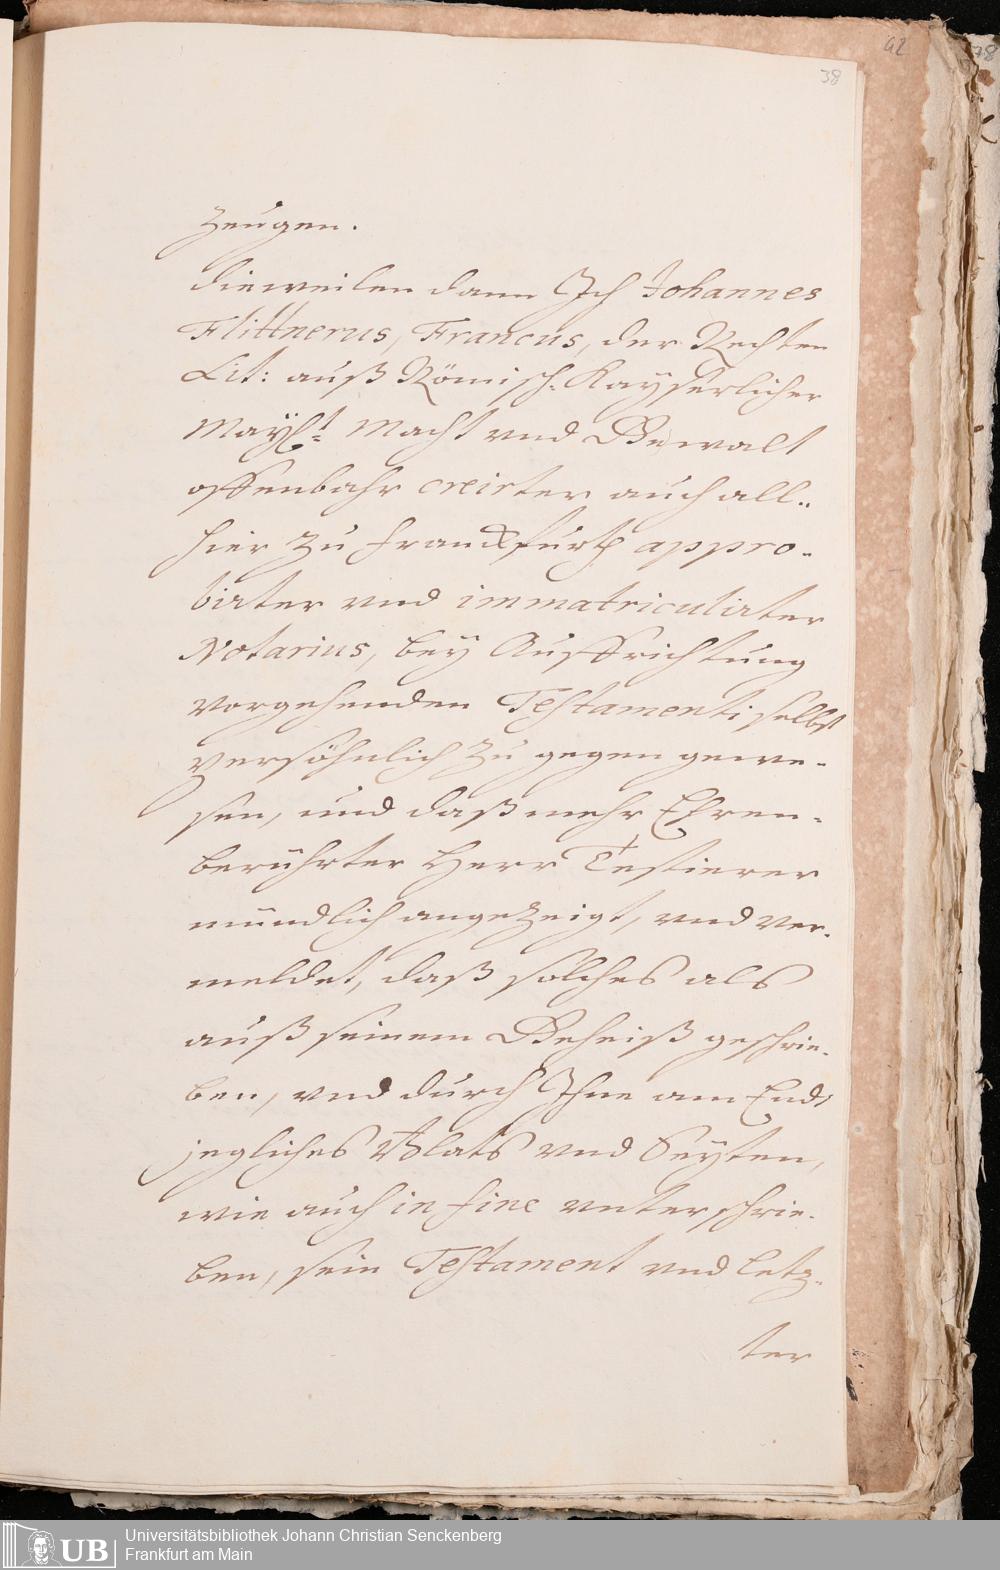 42
38
78
Zeugen.
dieweilen dann Ich Johannes
Flittnerus, Francus, der Rechten
Lit: auß Römisch. Kayserlicher
Mayst. Macht vnd Gewalt
offenbahr creirter auch all..
hier zu Franckfurth appro-
birter vnd immatriculirter
Notarius, bey Auffrichtung
vorgehenden Testamenti selbst
persöhnlich zu gegen gewe-
sen, und daß mehr Ehren-
berührter Herr Testierer
mündlich angezeigt, vnd ver-
meldet, daß solches als
auß seinem Geheiß geschrie-
ben, vnd durch Ihne am End
jegliches Blats vnd Seyten,
wie auch in fine vnterschrie-
ben, sein Testament vnd letz-
ter
UB Universitätsbibliothek Johann Christian Senckenberg
Frankfurt am Main